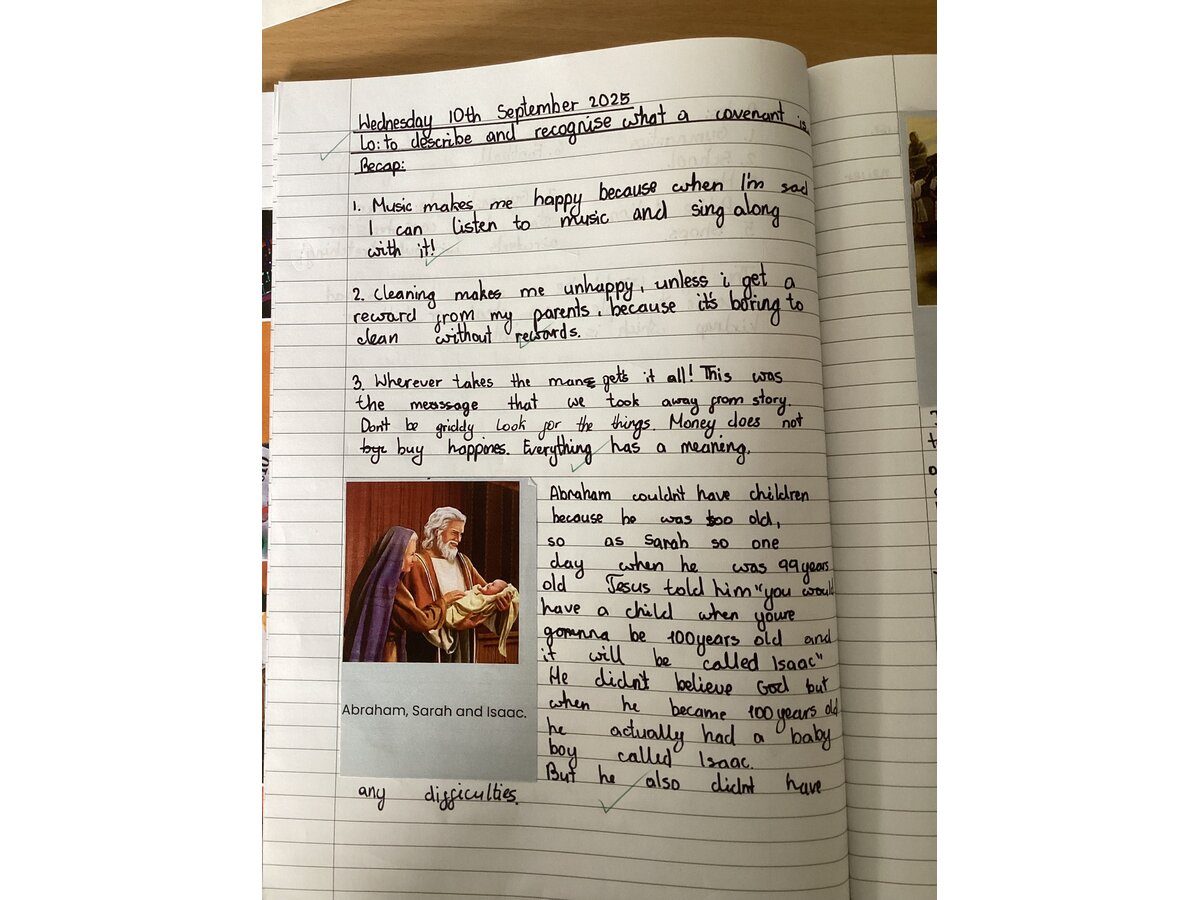 Wednesday 10th September 2025
Lo: to describe and recognise what a covenant is.
Recap:
1. Music makes me happy because when I'm sad
I can listen to music and sing along
with it!
2. Cleaning makes me unhappy, unless i get a
reward from my parents, because it's boring to
clean without rewords.
3. Wherever takes the mane gets it all! This was
the messsage that we took away from story.
Don't be griddy Look for the things. Money does not
buy happines. Everything has a meaning.
Abraham couldn't have children
because he was too old,
so as Sarah so one
day when he was 99 years
old Jesus told him "you would
have a child when youre
gomnna be 100 years old and
it will be called Isaac"
He didn't believe God but
when he became 100 years old
he actually had a baby
boy called Isaac.
But he also didnt have
any difficulties.
Abraham, Sarah and Isaac.